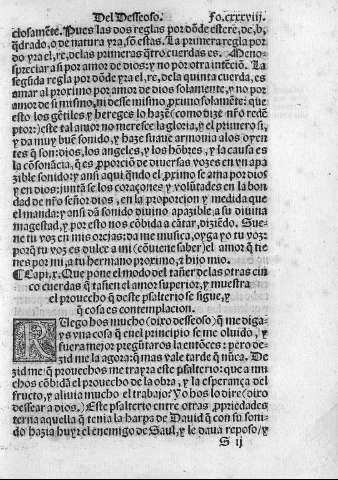 Del Desseoso. Fo.cxxxviij.
closamẽte. Pues las dos reglas por dõde estere, de, b,
q̃drado, o de natura yra, sõ estas. La primera regla por
do yra el, re, de las primeras q̃tro cuerdas es. Meno-
spreciar asi por amor de dios: y no por otra intẽciõ. La
segũda regla por dõde yra el, re, de la quinta cuerda, es
amar al proximo por amor de dios solamente, y no por
amor de si mismo, ni desse mismo ꝓximo solamẽte: que
esto los gẽtiles y hereges lo hazẽ (como dize nr̃o redẽ
ptor:) este tal amor no meresce la gloria, y el primero si,
y da muy buẽ sonido, y haze suaue armonia a los oyen
tes q̃ son: dios, los angeles, y los hõbres, y la causa es
la cõsonãcia, q̃ es ꝓporciõ de diuersas vozes en vn apa
zible sonido: y ansi aqui q̃ndo el ꝓximo se ama por dios
y en dios: jũtã se los coraçones y volũtades en la bon
dad de nr̃o señor dios, en la ꝓporcion y medida que
el manda: y ansi dã sonido diuino apazible a su diuina
magestad, y por esto nos cõbida a cãtar, diziẽdo. Sue-
ne tu voz en mis orejas: da me musica, oyga yo tu voz:
porq̃ tu voz es dulce a mi (cõuiene saber) el amor q̃ tie
nes por mi, a tu hermano proximo, z hijo mio.
¶ Capi. x. Que pone el modo del tañer de las otras cin
co cuerdas q̃ tañen el amor superior, y muestra
el prouecho q̃ deste psalterio se sigue, y
q̃ cosa es contemplacion.
RUego hos mucho (dixo desseoso) q̃ me diga-
ys vna cosa q̃ en el principio se me oluido, y
fuera mejor pregũtaros la entõces: pero de-
zid me la agora: q̃ mas vale tarde q̃ nũca. De
zid me: q̃ prouechos me trayra este psalterio: que a mu
chos cõbida el prouecho de la obra, y la esperança del
fructo, y aliuia mucho el trabajo? Yo hos lo dire (dixo
dessear a dios.) Este psalterio entre otras ꝓpriedades
terna aquella q̃ tenia la harpa de Dauid q̃ con su soni-
do hazia huyr el enemigo de Saul, y le daua reposo/y
S ij